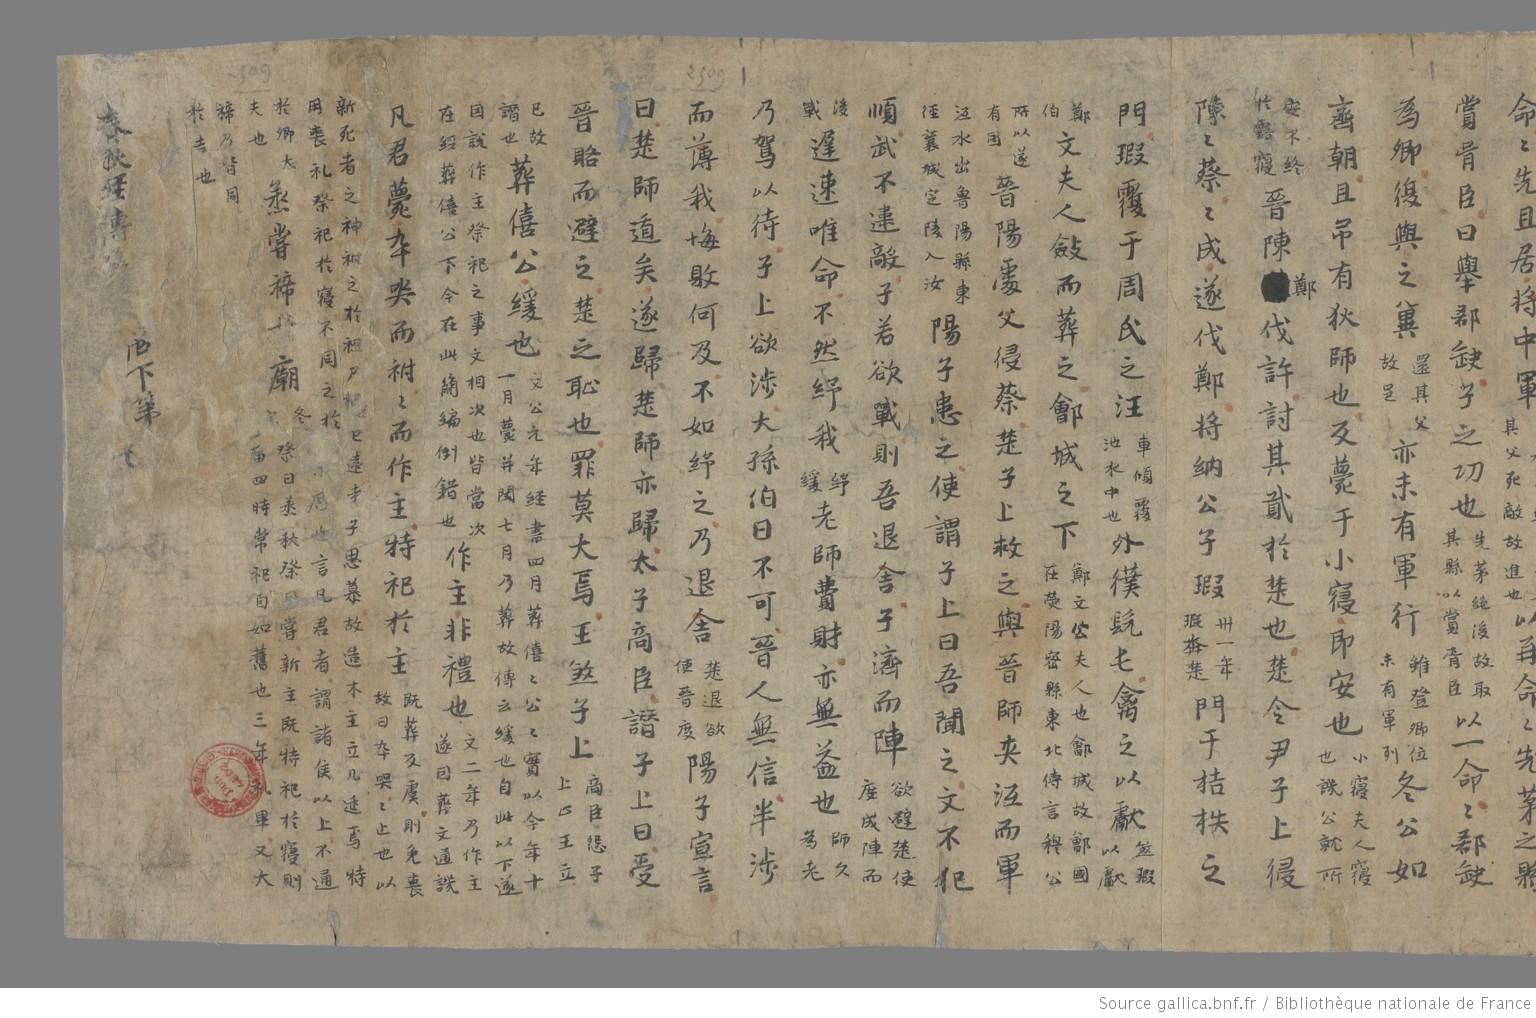 命〻先且居將中軍其父死敵故進也以再命〻先茅之縣
賞胥臣曰舉郤缺子之功也先茅絶後故取其縣以賞胥臣以一命〻郤缺
為卿復與之兾還其父故邑亦未有軍行雖登卿位未有軍列冬公如
齊朝且吊有狄師也反薨于小寢即安也小寢夫人寢也譏公就所
安不終於露寢晉陳鄭伐許討其貳於楚也楚令尹子上侵
陳〻蔡〻成遂伐鄭將納公子瑕卅一年瑕奔楚門于桔柣之
門瑕覆于周氏之汪車傾覆池水中也外僕髡屯禽之以獻煞瑕以獻
鄭伯文夫人斂而葬之鄶城之下鄭文公夫人也鄶城故鄶國在熒陽密縣東北傳言穆公
所以遂有國晉陽處父侵蔡楚子上救之與晉師夾泜而軍
泜水出魯陽縣東徑襄城定陵入汝陽子患之使謂子上曰吾聞之文不犯
順武不違敵子若欲戰則吾退舍子濟而陣欲避楚使度成陣而
後戰遲速唯命不然紓我紓緩老師費財亦無益也師久為老
乃駕以待子上欲涉大孫伯曰不可晉人無信半涉
而薄我悔敗何及不如紓之乃退舍楚退欲使晉度陽子宣言
曰楚師遁矣遂歸楚師亦歸太子商臣譖子上曰受
晉賂而避之楚之恥也罪莫大焉王煞子上商臣怨子上止王立
已故譖也葬僖公緩也文公元年經書四月葬僖〻公〻實以今年十一月薨并閏七月乃葬故傳云緩也自此以下遂
因說作主祭祀之事文相次也皆當次在經葬僖公下今在此簡編倒錯也作主非禮也文二年乃作主遂因葬文通譏
凡君薨卒哭而祔〻而作主特祀於主既葬反虞則免喪故曰卒哭〻止也以
新死者之神祔之於祖尸柩已遠孝子思慕故造木主立几筵焉特
用喪礼祭祀於寢不同之於
於卿大夫也烝嘗禘於廟冬祭曰烝秋祭曰嘗新主既特祀於寢則
四時常祀自如舊也三年礼畢又大
禘乃皆同於吉也
春秋經傳
僖下第
2509
2509
Source gallica.bnf.fr / Bibliothèque nationale de France